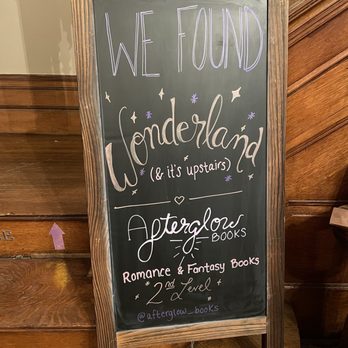 WE FOUND
Wonderland
(& it's upstairs)
Afterglow
BOOKS
Romance & Fantasy Books
2nd Level
@afterglow_books